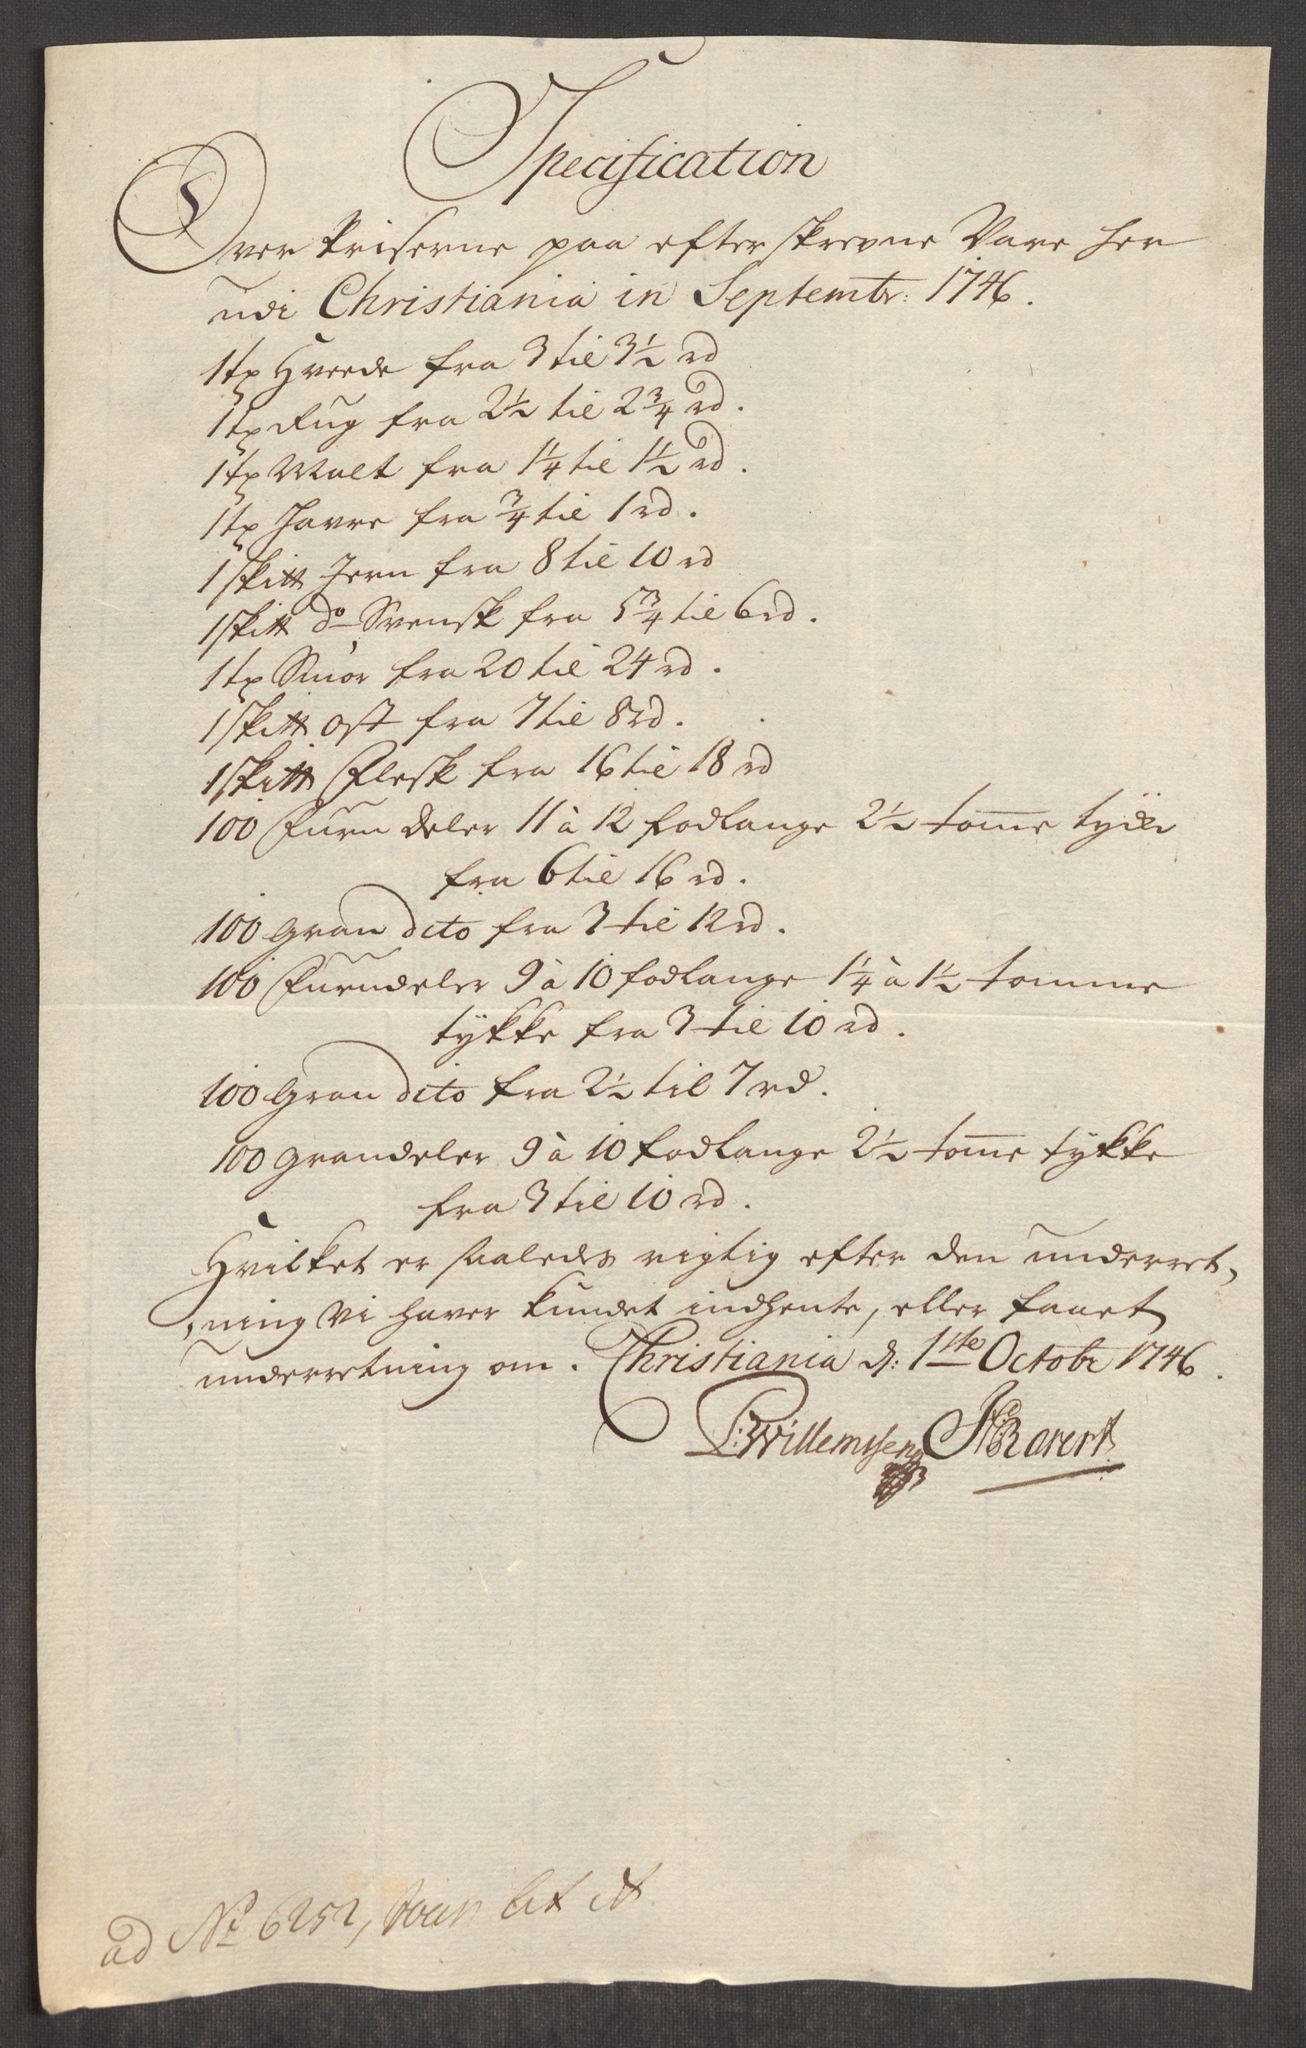 Specification
Over Priserne paa efterskrevne Vare her
udi Christiania in Septembr: 1746.
1 tr Hvede fra 3 til 3½ rd
1 tr Rug fra 2½ til 2¾ rd.
1 tr Malt fra 1¼ til 1½ rd.
1 tr Havre fra ¾ til 1 rd.
1 sk℔ Jern fra 8 til 10 rd
1 sk℔ do Svensk fra 5¾ til 6 rd.
1 tr Smør fra 20 til 24 rd.
1 sk℔ Ost fra 7 til 8 rd.
1 sk℔ Flesk fra 16 til 18 rd
100 Furu deler 11 à 12 fodlange 2½ tome tycke
fra 6 til 16 rd.
100 Gran dito fra 3 til 12 rd.
100 Furudeler 9 à 10 fodlange 1¼ à 1½ tomme
tykke fra 3 til 10 rd.
100 Gran dito fra 2½ til 7 rd.
100 Grandeler 9 à 10 fodlange 2½ tome tykke
fra 3 til 10 rd.
Hvilket er saaledes rigtig efter den underret,
ning vi haver kundet indhente, eller faaet
underretning om. Christiania d: 1ste Octobr 1746.
P: Willemssen Ravert
ad No 6252, lit A